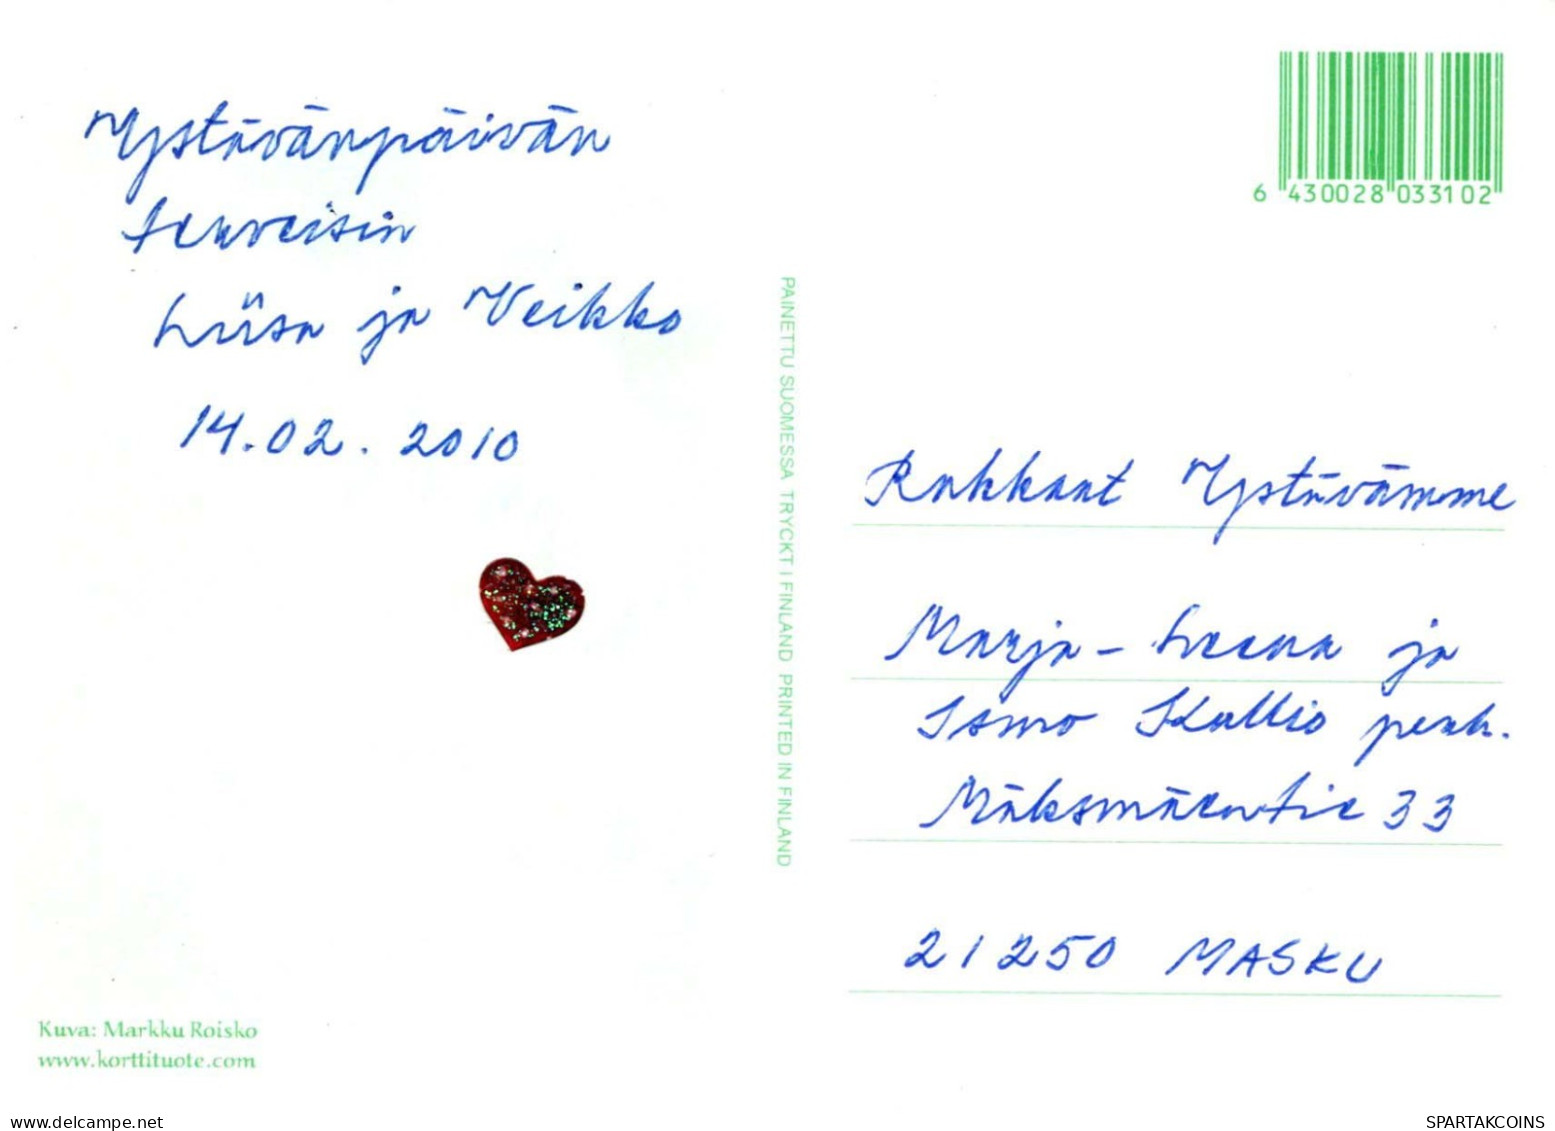 Ystävänpäivän
terveisin
Liisa ja Veikko
14.02.2010
Kuva: Markku Roisko
www.korttituote.com
PAINETTU SUOMESSA TRYCKT I FINLAND PRINTED IN FINLAND
6 430028 033102
Rakkaat Ystävämme
Marja-Leena ja
Ismo Kallio perh.
Mäksmäentie 33
21250 MASKU
delcampe.net
SPARTAKCOINS